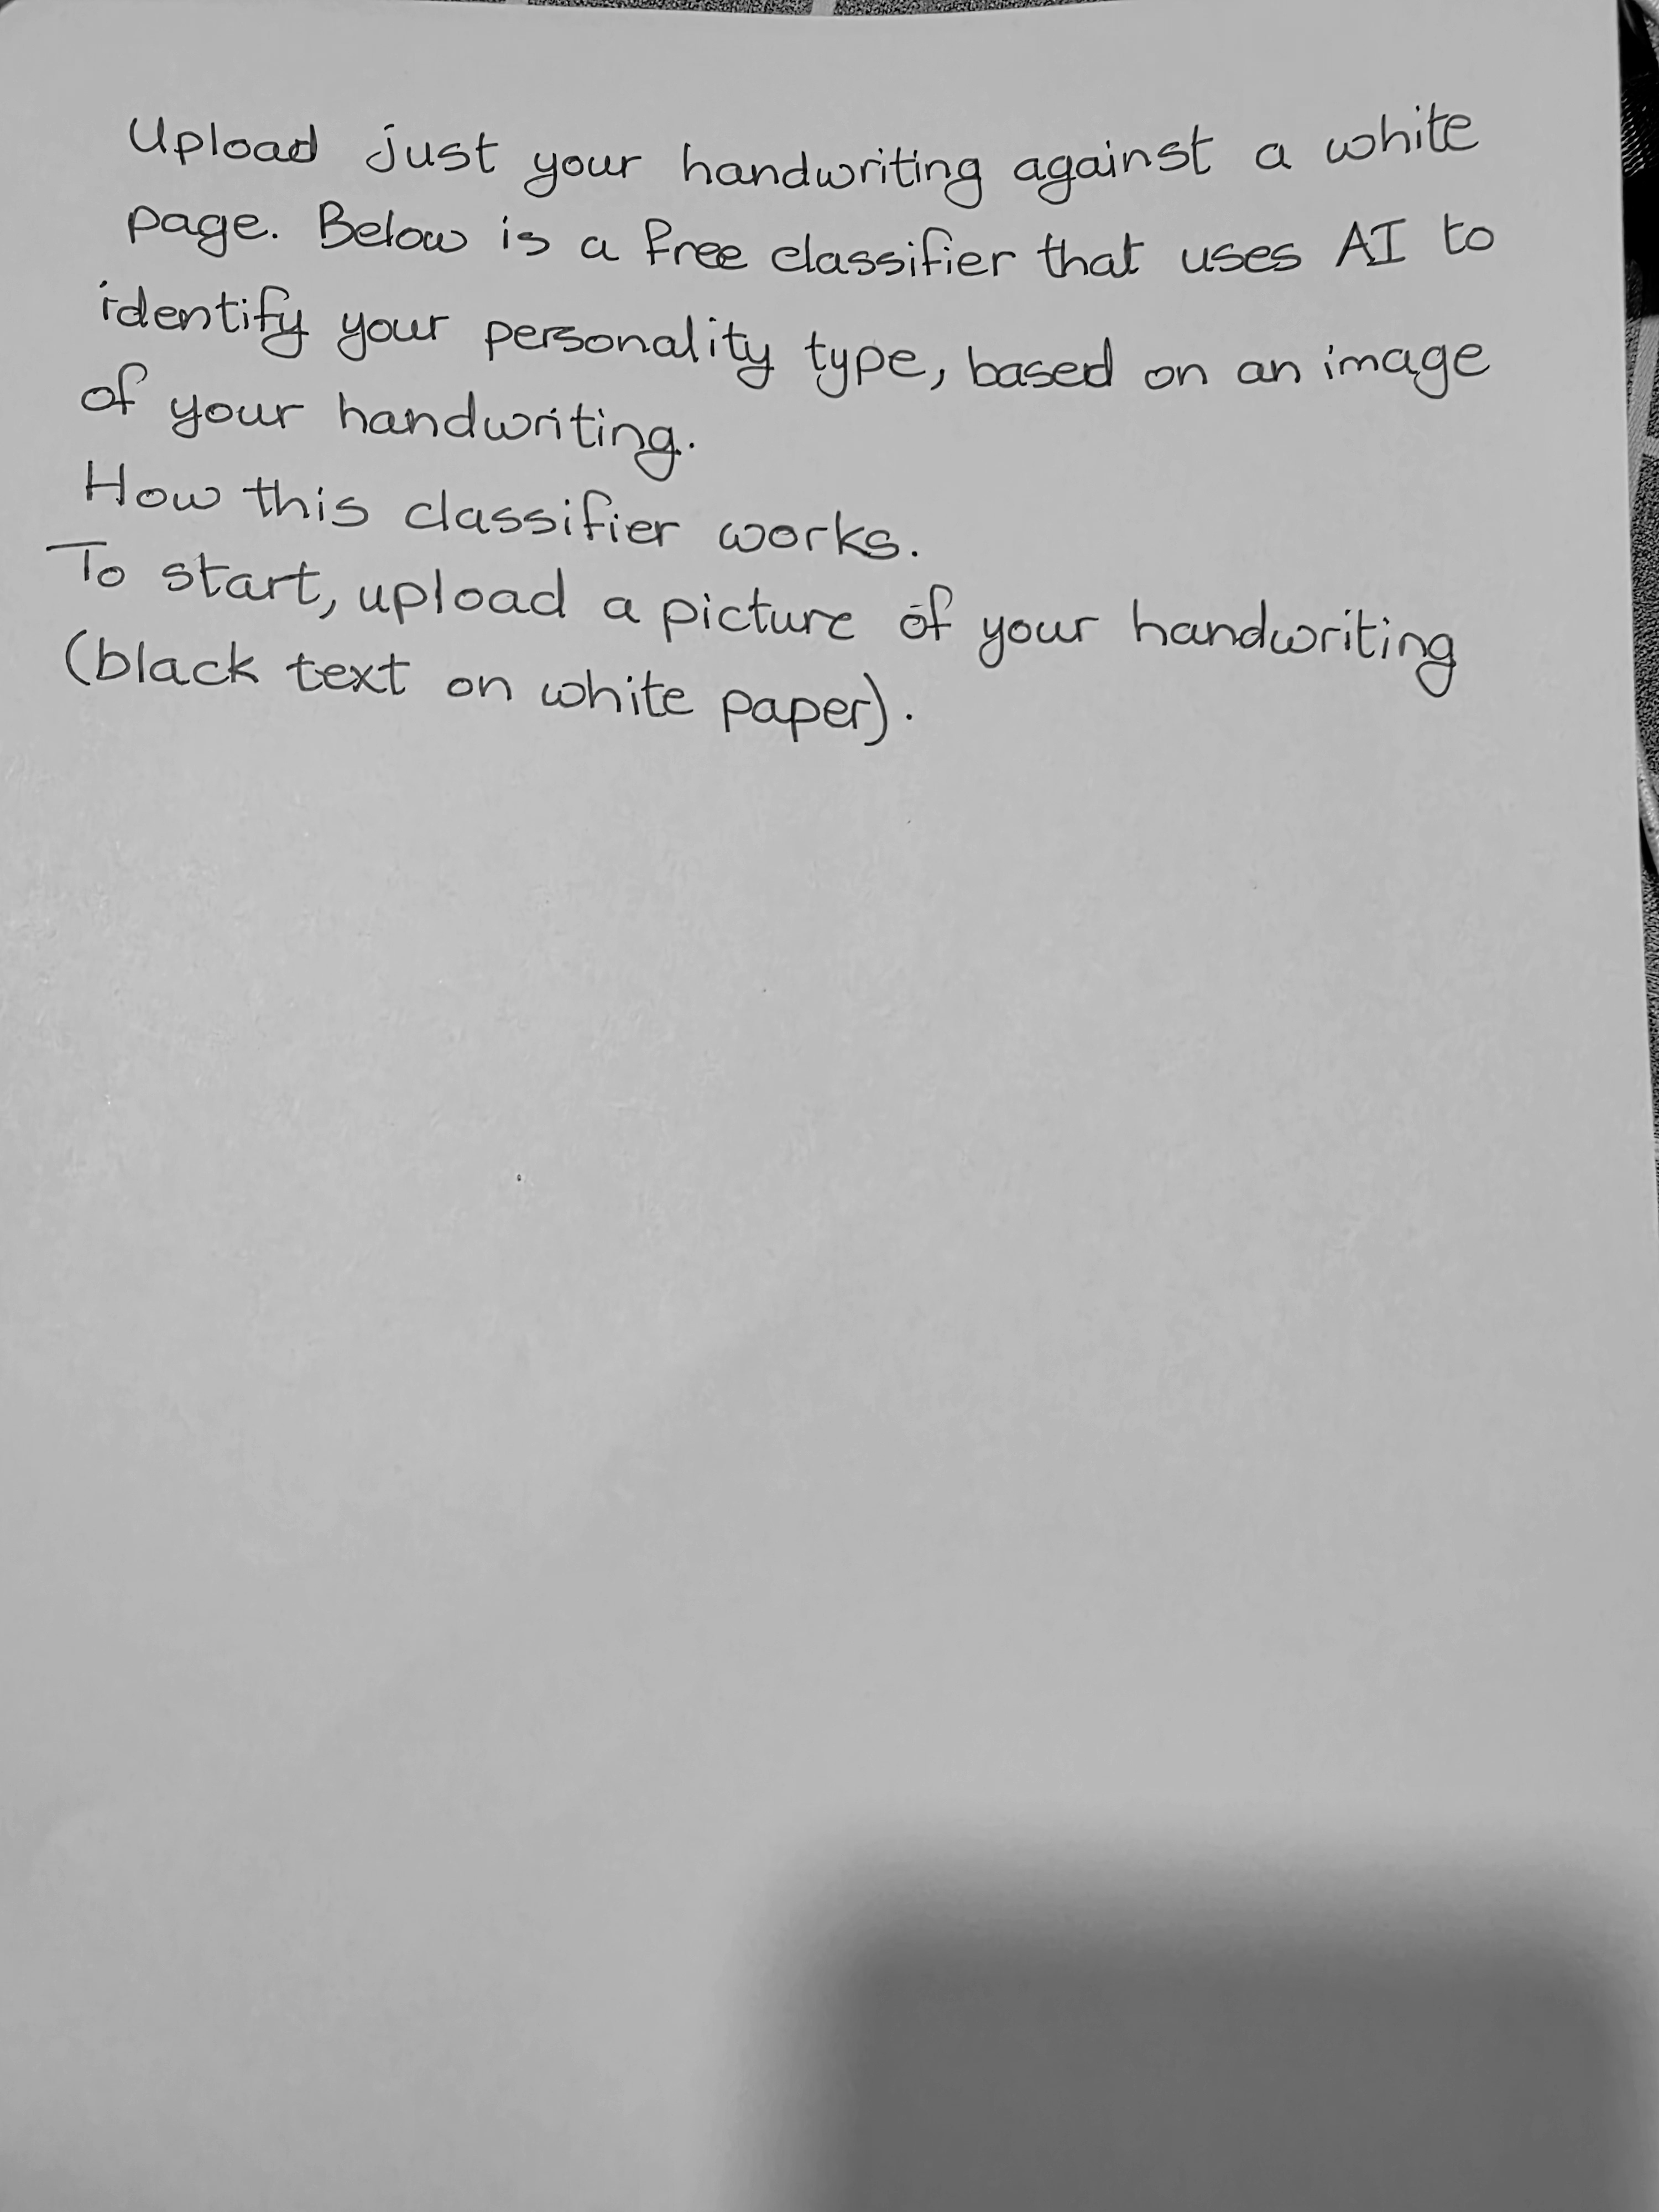 Upload just your handwriting against a white
page. Below is a free classifier that uses AI to
identify your personality type, based on an image
of your handwriting.
How this classifier works.
To start, upload a picture of your handwriting
(black text on white paper).